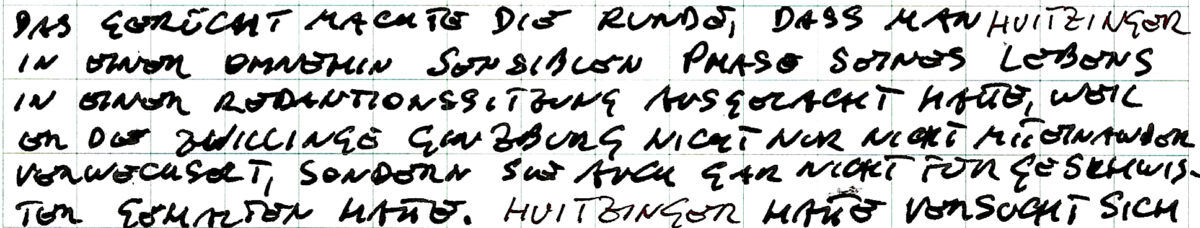 DAS GERÜCHT MACHTE DIE RUNDE, DASS MAN HUITZINGER
IN EINER OHNEHIN SENSIBLEN PHASE SEINES LEBENS
IN EINER REDAKTIONSSITZUNG AUSGELACHT HATTE, WEIL
ER DIE ZWILLINGE GINZBURG NICHT NUR NICHT MITEINANDER
VERWECHSELT, SONDERN SIE AUCH GAR NICHT FÜR GESCHWIS-
TER GEHALTEN HATTE. HUITZINGER HATTE VERSUCHT SICH